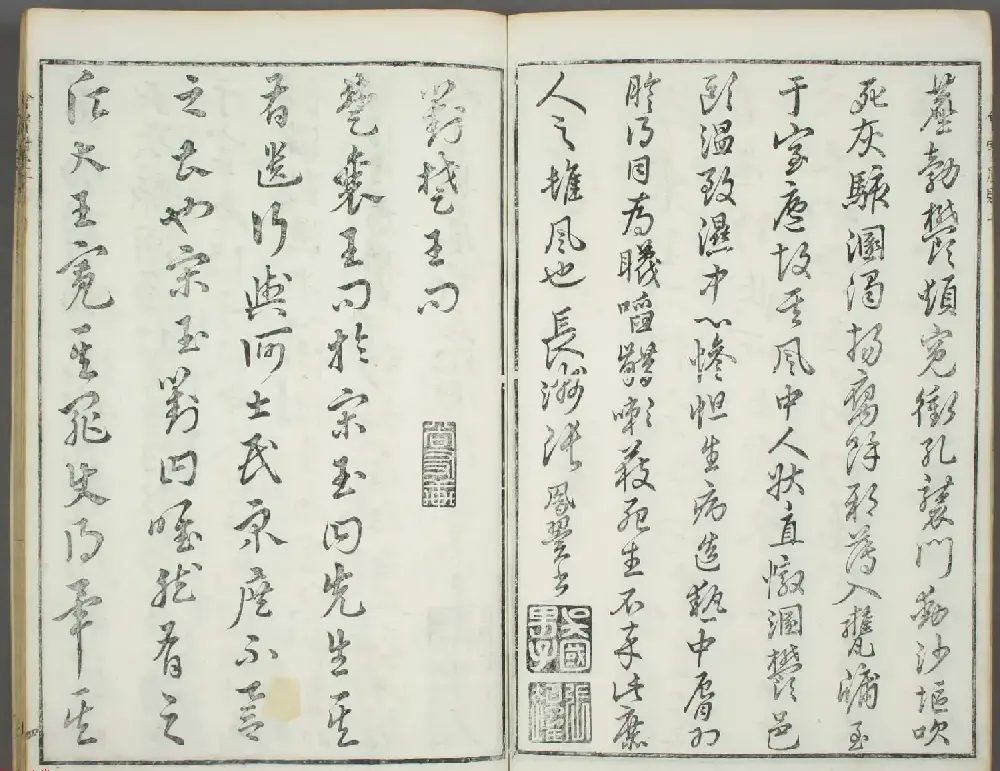 塵勃鬱煩冤衝孔襲門動沙堁吹
死灰駭溷濁揚腐餘邪薄入甕牖至
于室廬故其風中人狀直憞溷鬱邑
毆溫致濕中心慘怛生病造熱中脣為
胗得目為䁾啗齰嗽獲死生不卒此庶
人之雌風也長洲張鳳翼書
吳國男子
對楚王問
楚襄王問於宋玉曰先生其
有遺行與何士民衆庶不譽
之甚也宋玉對曰唯然有之
願大王寬其罪使得畢其